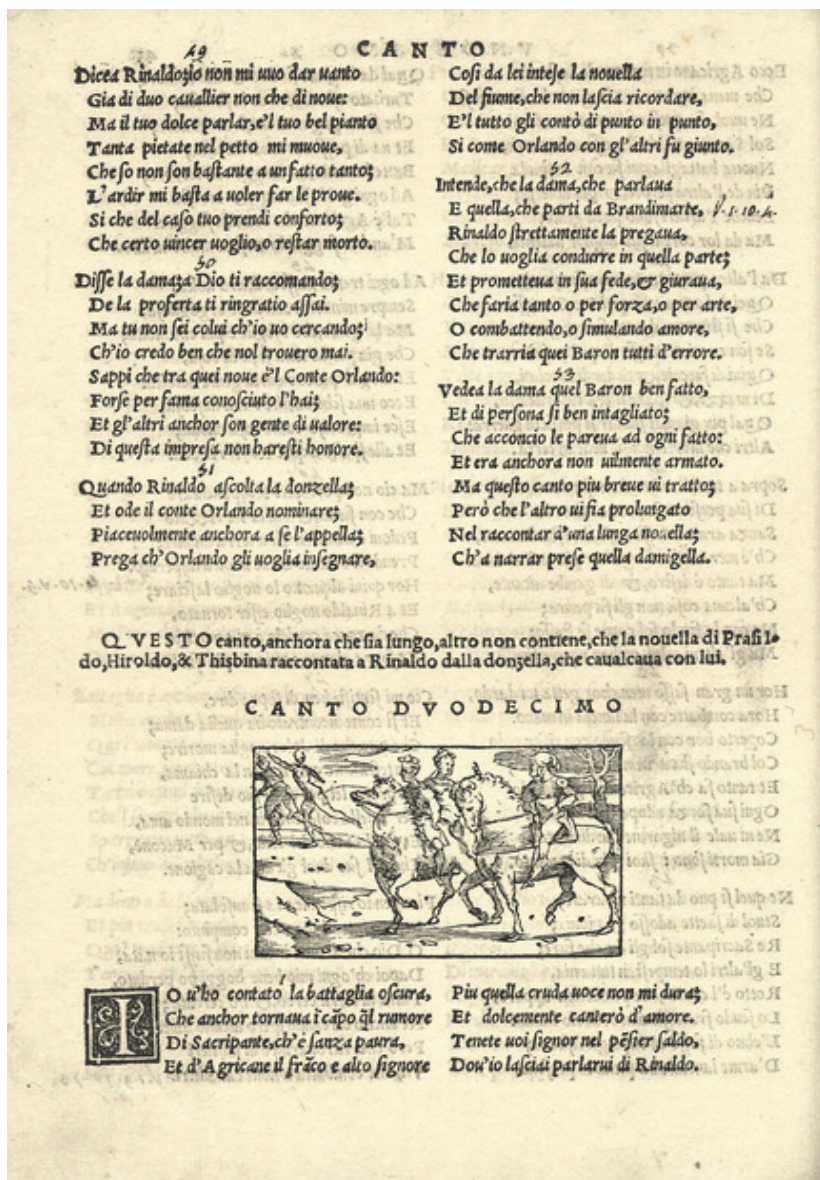 CANTO
49
Dicea Rinaldo; io non mi uuo dar uanto
Gia di duo cauallier non che di noue:
Ma il tuo dolce parlar, e'l tuo bel pianto
Tanta pietate nel petto mi muoue,
Che so non son bastante a un fatto tanto;
L'ardir mi basta a uoler far le proue.
Si che del caso tuo prendi conforto;
Che certo uincer uoglio, o restar morto.
50
Disse la dama; a Dio ti raccomando;
De la proferta ti ringratio assai.
Ma tu non sei colui ch'io uo cercando;
Ch'io credo ben che nol trouero mai.
Sappi che tra quei noue è'l Conte Orlando:
Forse per fama conosciuto l'hai;
Et gl'altri anchor son gente di ualore:
Di questa impresa non haresti honore.
51
Quando Rinaldo ascolta la donzella;
Et ode il conte Orlando nominare;
Piaceuolmente anchora a se l'appella;
Prega ch'Orlando gli uoglia insegnare,
Cosi da lei intese la nouella
Del fiume, che non lascia ricordare,
E'l tutto gli contò di punto in punto,
Si come Orlando con gl'altri fu giunto.
52
Intende, che la dama, che parlaua
E quella, che parti da Brandimarte, V.1.10.4.
Rinaldo strettamente la pregaua,
Che lo uoglia condurre in quella parte;
Et prometteua in sua fede, & giuraua,
Che faria tanto o per forza, o per arte,
O combattendo, o simulando amore,
Che trarria quei Baron tutti d'errore.
53
Vedea la dama quel Baron ben fatto,
Et di persona si ben intagliato;
Che acconcio le pareua ad ogni fatto:
Et era anchora non uilmente armato.
Ma questo canto piu breue ui tratto;
Però che l'altro ui fia prolungato
Nel raccontar d'una lunga nouella;
Ch'a narrar prese quella damigella.
QVESTO canto, anchora che sia lungo, altro non contiene, che la nouella di Prasil-
do, Hiroldo, & Thisbina raccontata a Rinaldo dalla donzella, che caualcaua con lui.
CANTO DVODECIMO
1
IO u'ho contato la battaglia oscura,
Che anchor tornaua ī cāpo q̄l rumore
Di Sacripante, ch'è sanza paura,
Et d'Agricane il frāco e alto signore
Piu quella cruda uoce non mi dura;
Et dolcemente canterò d'amore.
Tenete uoi signor nel pēsier saldo,
Dou'io lasciai parlarui di Rinaldo.